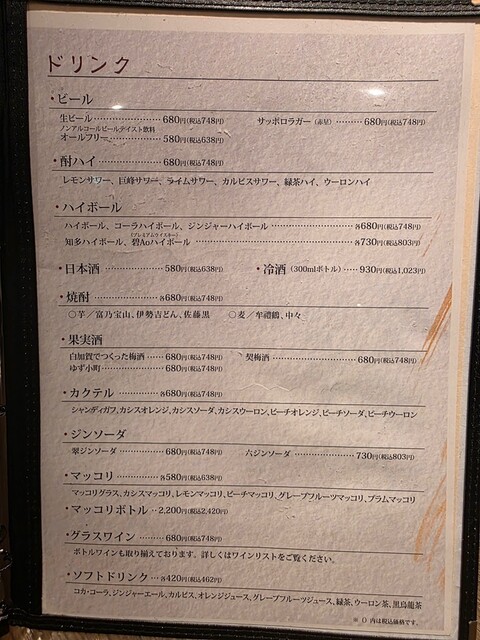 ドリンク
・ビール
生ビール……………………680円(税込748円)
サッポロラガー（赤星）………680円(税込748円)
ノンアルコールビールテイスト飲料
オールフリー………………580円(税込638円)
・酎ハイ……………………680円(税込748円)
レモンサワー、巨峰サワー、ライムサワー、カルピスサワー、緑茶ハイ、ウーロンハイ
・ハイボール
ハイボール、コーラハイボール、ジンジャーハイボール……………………各680円(税込748円)
(プレミアムウイスキー)
知多ハイボール、碧Aoハイボール……………………各730円(税込803円)
・日本酒……………………580円(税込638円)
・冷酒（300mlボトル）……930円(税込1,023円)
・焼酎……………………各680円(税込748円)
○芋／富乃宝山、伊勢吉どん、佐藤黒　○麦／牟禮鶴、中々
・果実酒
白加賀でつくった梅酒……680円(税込748円)
契梅酒……………………680円(税込748円)
ゆず小町……………………680円(税込748円)
・カクテル………各680円(税込748円)
シャンディガフ、カシスオレンジ、カシスソーダ、カシスウーロン、ピーチオレンジ、ピーチソーダ、ピーチウーロン
・ジンソーダ
翠ジンソーダ………………680円(税込748円)
六ジンソーダ………………730円(税込803円)
・マッコリ………各580円(税込638円)
マッコリグラス、カシスマッコリ、レモンマッコリ、ピーチマッコリ、グレープフルーツマッコリ、プラムマッコリ
・マッコリボトル…2,200円(税込2,420円)
・グラスワイン……………680円(税込748円)
ボトルワインも取り揃えております。詳しくはワインリストをご覧ください。
・ソフトドリンク…各420円(税込462円)
コカ・コーラ、ジンジャーエール、カルピス、オレンジジュース、グレープフルーツジュース、緑茶、ウーロン茶、黒烏龍茶
※（）内は税込価格です。